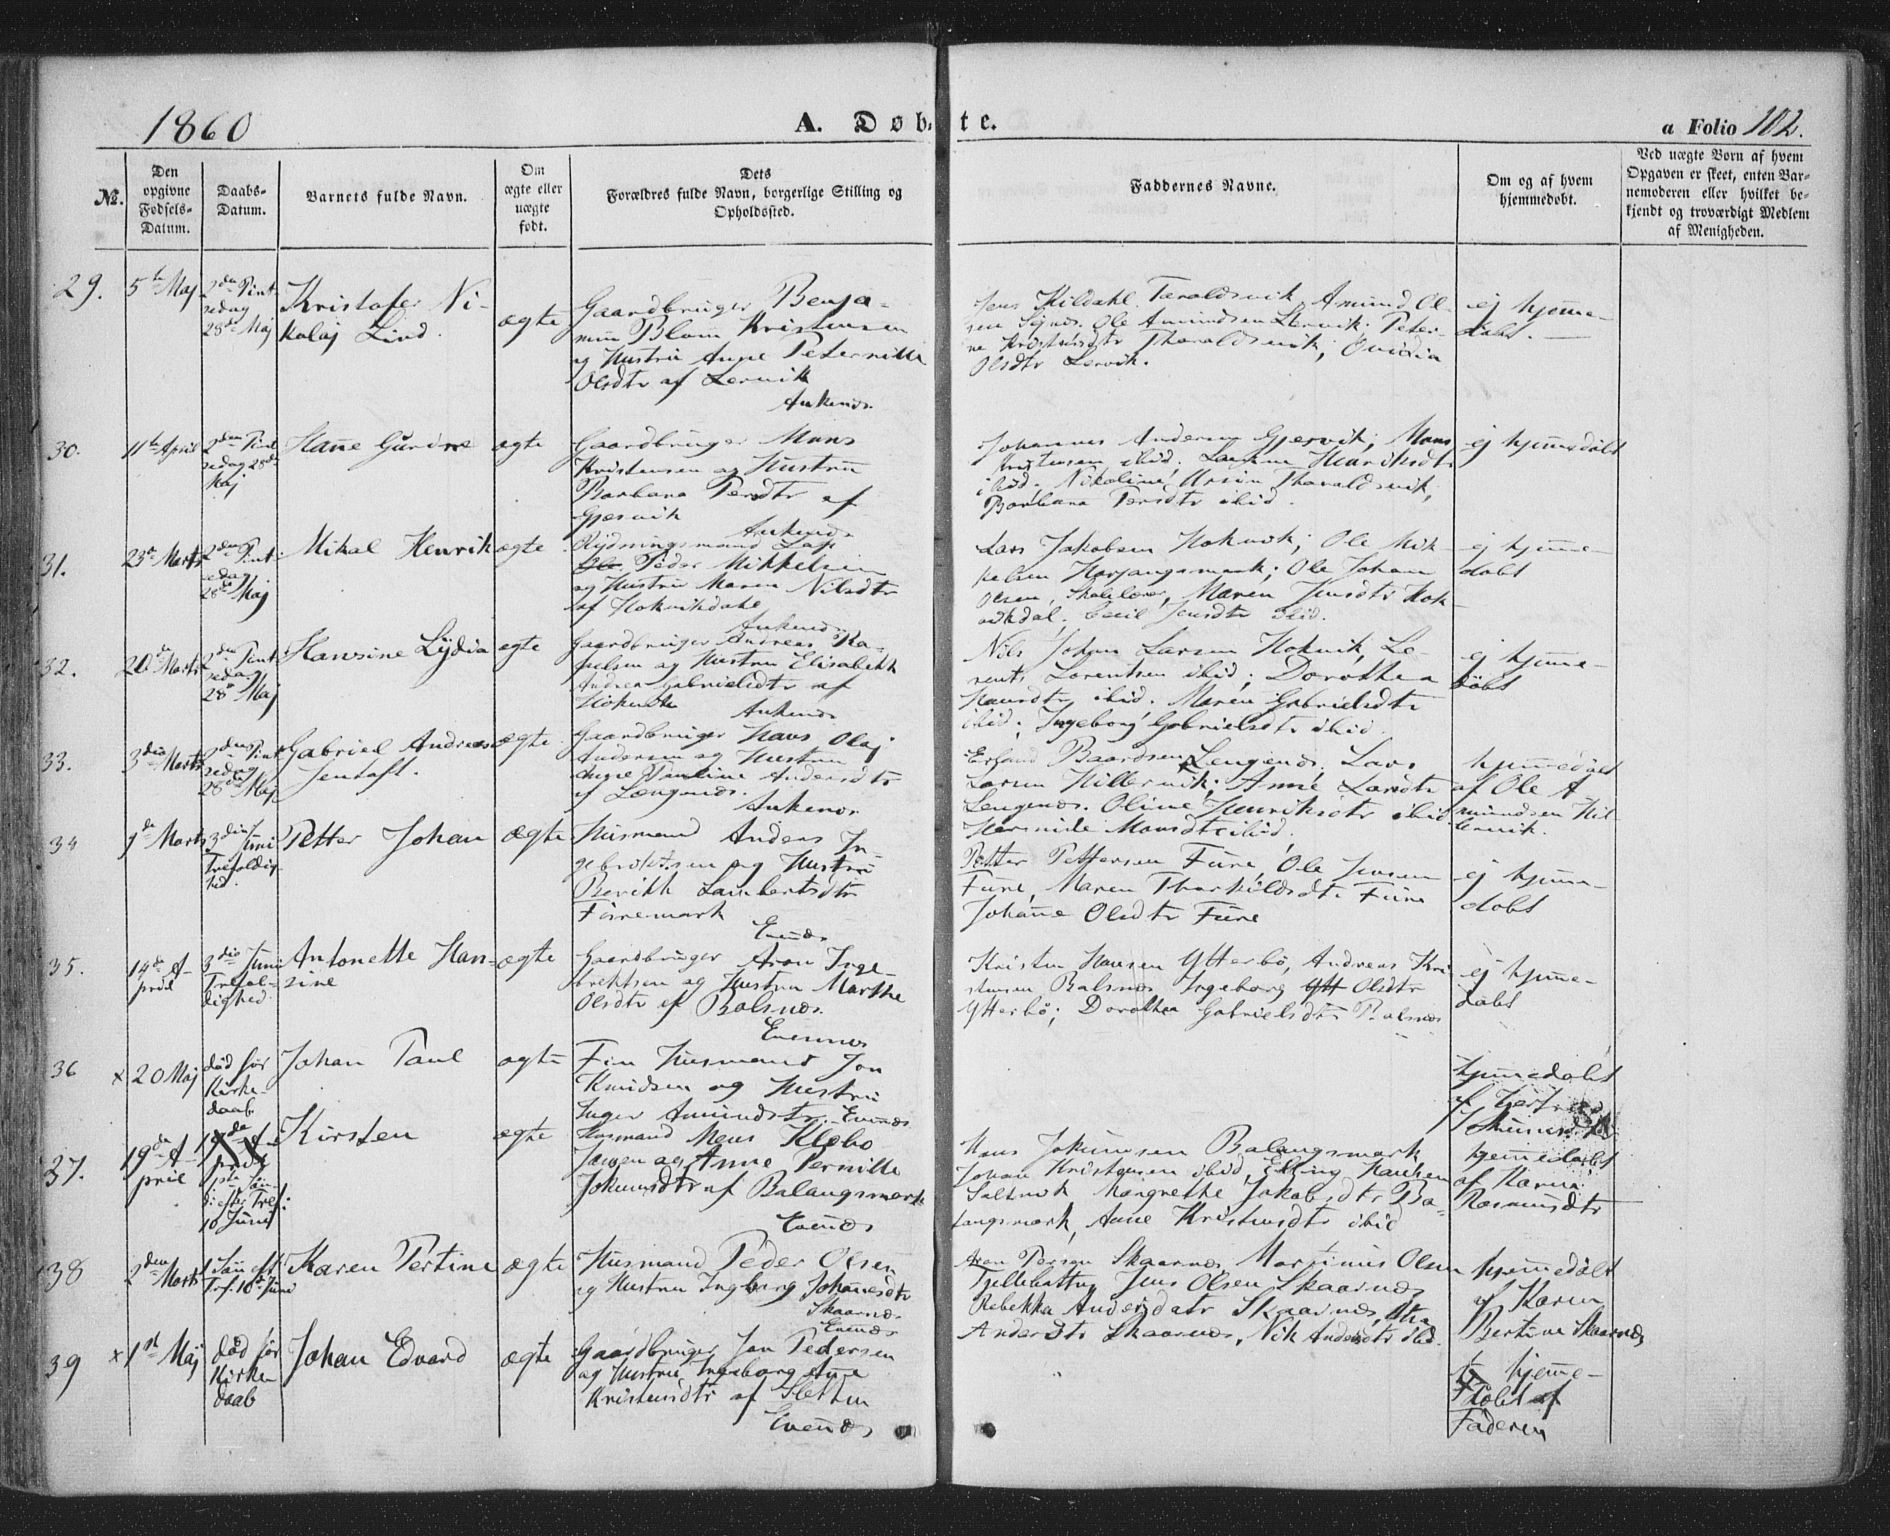 1860
A. Døbte.
a Folio 102.
No.
Den opgivne Fødsels-Datum.
Daabs-Datum.
Barnets fulde Navn.
Om ægte eller uægte født.
Dets Forældres fulde Navn, borgerlige Stilling og Opholdssted.
Faddernes Navne.
Om og af hvem hjemmedøbt.
Ved uægte Børn af hvem Opgaven er skeet, enten Barnemoderen eller hvilket bekjendt og troværdigt Medlem af Menigheden.
29.
5te Maj
2den Pint-
sedag
28de Maj
Kristofer Ni-
kolaj Lind.
ægte
Gaardbruger Benja-
min Blom Kristensen
og Hustru Anne Peternille
Olsdtr af Lervik
Ankenes
Jens Kildahl Taraldsvik, Amund Ol-
sen, Ole Amundsen Lervik. Peter-
ne Kristensdtr Tharaldsvik,
Olsdtr Lervik.
ej hjemme-
døbt.
30.
11te April
2den Pint
sedag 28de
Maj
Hane
ægte
Gaardbruger Mons
Kristensen og Hustru
Barbara Persdtr af
Gjersvik
Ankenes
Johannes Andersen Gjersvik; Mons
Kristensen ibid; Henriksdtr
ibid. Nikoline Tharaldsvik,
Barbara Persdtr ibid.
ej hjemmedøbt
31.
23de Marts
2den Pint-
sedag
28de Maj
Mikal Henrik
ægte
Rydningsmand Lap
Peder Mikkelsen
og Hustru Maren Nilsdtr
af Hokvikdale
Ankenes
Lars Jakobsen Hokvik; Ole Mik-
kelsen Harjangsmark; Ole Johan
Olsen, Skolelærer, Maren Jensdtr Hok-
vikdal, Jensdtr ibid.
ej hjemme-
døbt
32.
20de Marts
2den Pint
sedag
28de Maj
Hansine Lydia
ægte
Gaardbruger Andreas Ra-
og Hustru Elisabeth
Andrea Gabrielsdtr af
Ankenes
Nils Johan Larsen Hokvik, Lo-
rents Lorentsen ibid; Dorothea
Hansdtr ibid. Maren Gabrielsdtr
ibid; Ingeborg Gabrielsdtr ibid.
ej hjemme-
døbt
33.
3die Marts
2den Pint
sedag
28de Maj
Gabriel Andreas
Jentoft.
ægte
Gaardbruger Hans Olaj
Andersen og Hustru
Pauline Andersdtr
af Længenes.
Ankenes
Baardsen Lengenes, Lars
Larsen Hillervik; Anne Larsdtr
Lengenes. Oline Henriksdtr ibid
Monsdtr ibid.
hjemmedøbt
af Ole A-
mundsen Hil-
lervik.
34
9de Marts
3die Juni
Trefoldig
hed.
Petter Johan
ægte
Husmand Anders In-
gebrektsen og Hustru
Berith Lambertsdtr
Evenes
Petter Pettersen Fure, Ole Jensen
Fure, Maren Thorkildsdtr Fure
Johanne Olsdtr Fure
ej hjemme-
døbt
35.
14de A-
pril
3die Juni
Trefol-
dighed
Antonette Han-
sine
ægte
Gaardbruger Aron Inge-
brektsen og Hustru Marthe
Olsdtr af Balsnes.
Evenes
Kristen Hansen Ytterbö, Andreas Kri-
stensen Balsnes Ingeborg Olsdtr
Ytterbö; Dorothea Gabrielsdtr Balsnes
ej hjemme-
døbt
36
x 20 Maj
død før
Kirke-
daab
Johan Paul
ægte
Fin Husmand Jon
Knudsen og Hustru
Inger Amundsdtr. Evenes
hjemmedøbt
37.
19de A-
pril
10 Juni
Kirsten
ægte
Husmand Mons Klebo
Jensen og Anne Pernille
Jokumsdtr af Balangsmark
Evenes
Hans Jokumsen Balangsmark
Johan Kristensen ibid, Elling Hansen
Margrethe Jakobsdtr Ba-
langsmark, Anne Kristensdtr ibid
hjemmedøbt
af Karen
Rasmusdtr
38
2den Marts
1 Søn eft
Tref. 10de Juni
Karen Bertine
ægte
Husmand Peder Olsen
og Hustru Ingeborg Johansdtr
Skaarnes
Evenes
Person Skaarnes, Martinus Olsen
Jens Olsen Skaarnes
Rebekka Andersdatr Skaarnes,
Andersdtr Skaarnes, Andersdtr ibid.
hjemmedøbt
af Karen
Bertine Skaarnes
39
x 1st Maj
død før
Kirken
daab
Johan Edvard
ægte
Gaardbruger Jon Pedersen
og Hustru Ingeborg Anne
Kristensdtr af Sletten
Evenes
hjemme-
døbt af
Faderen